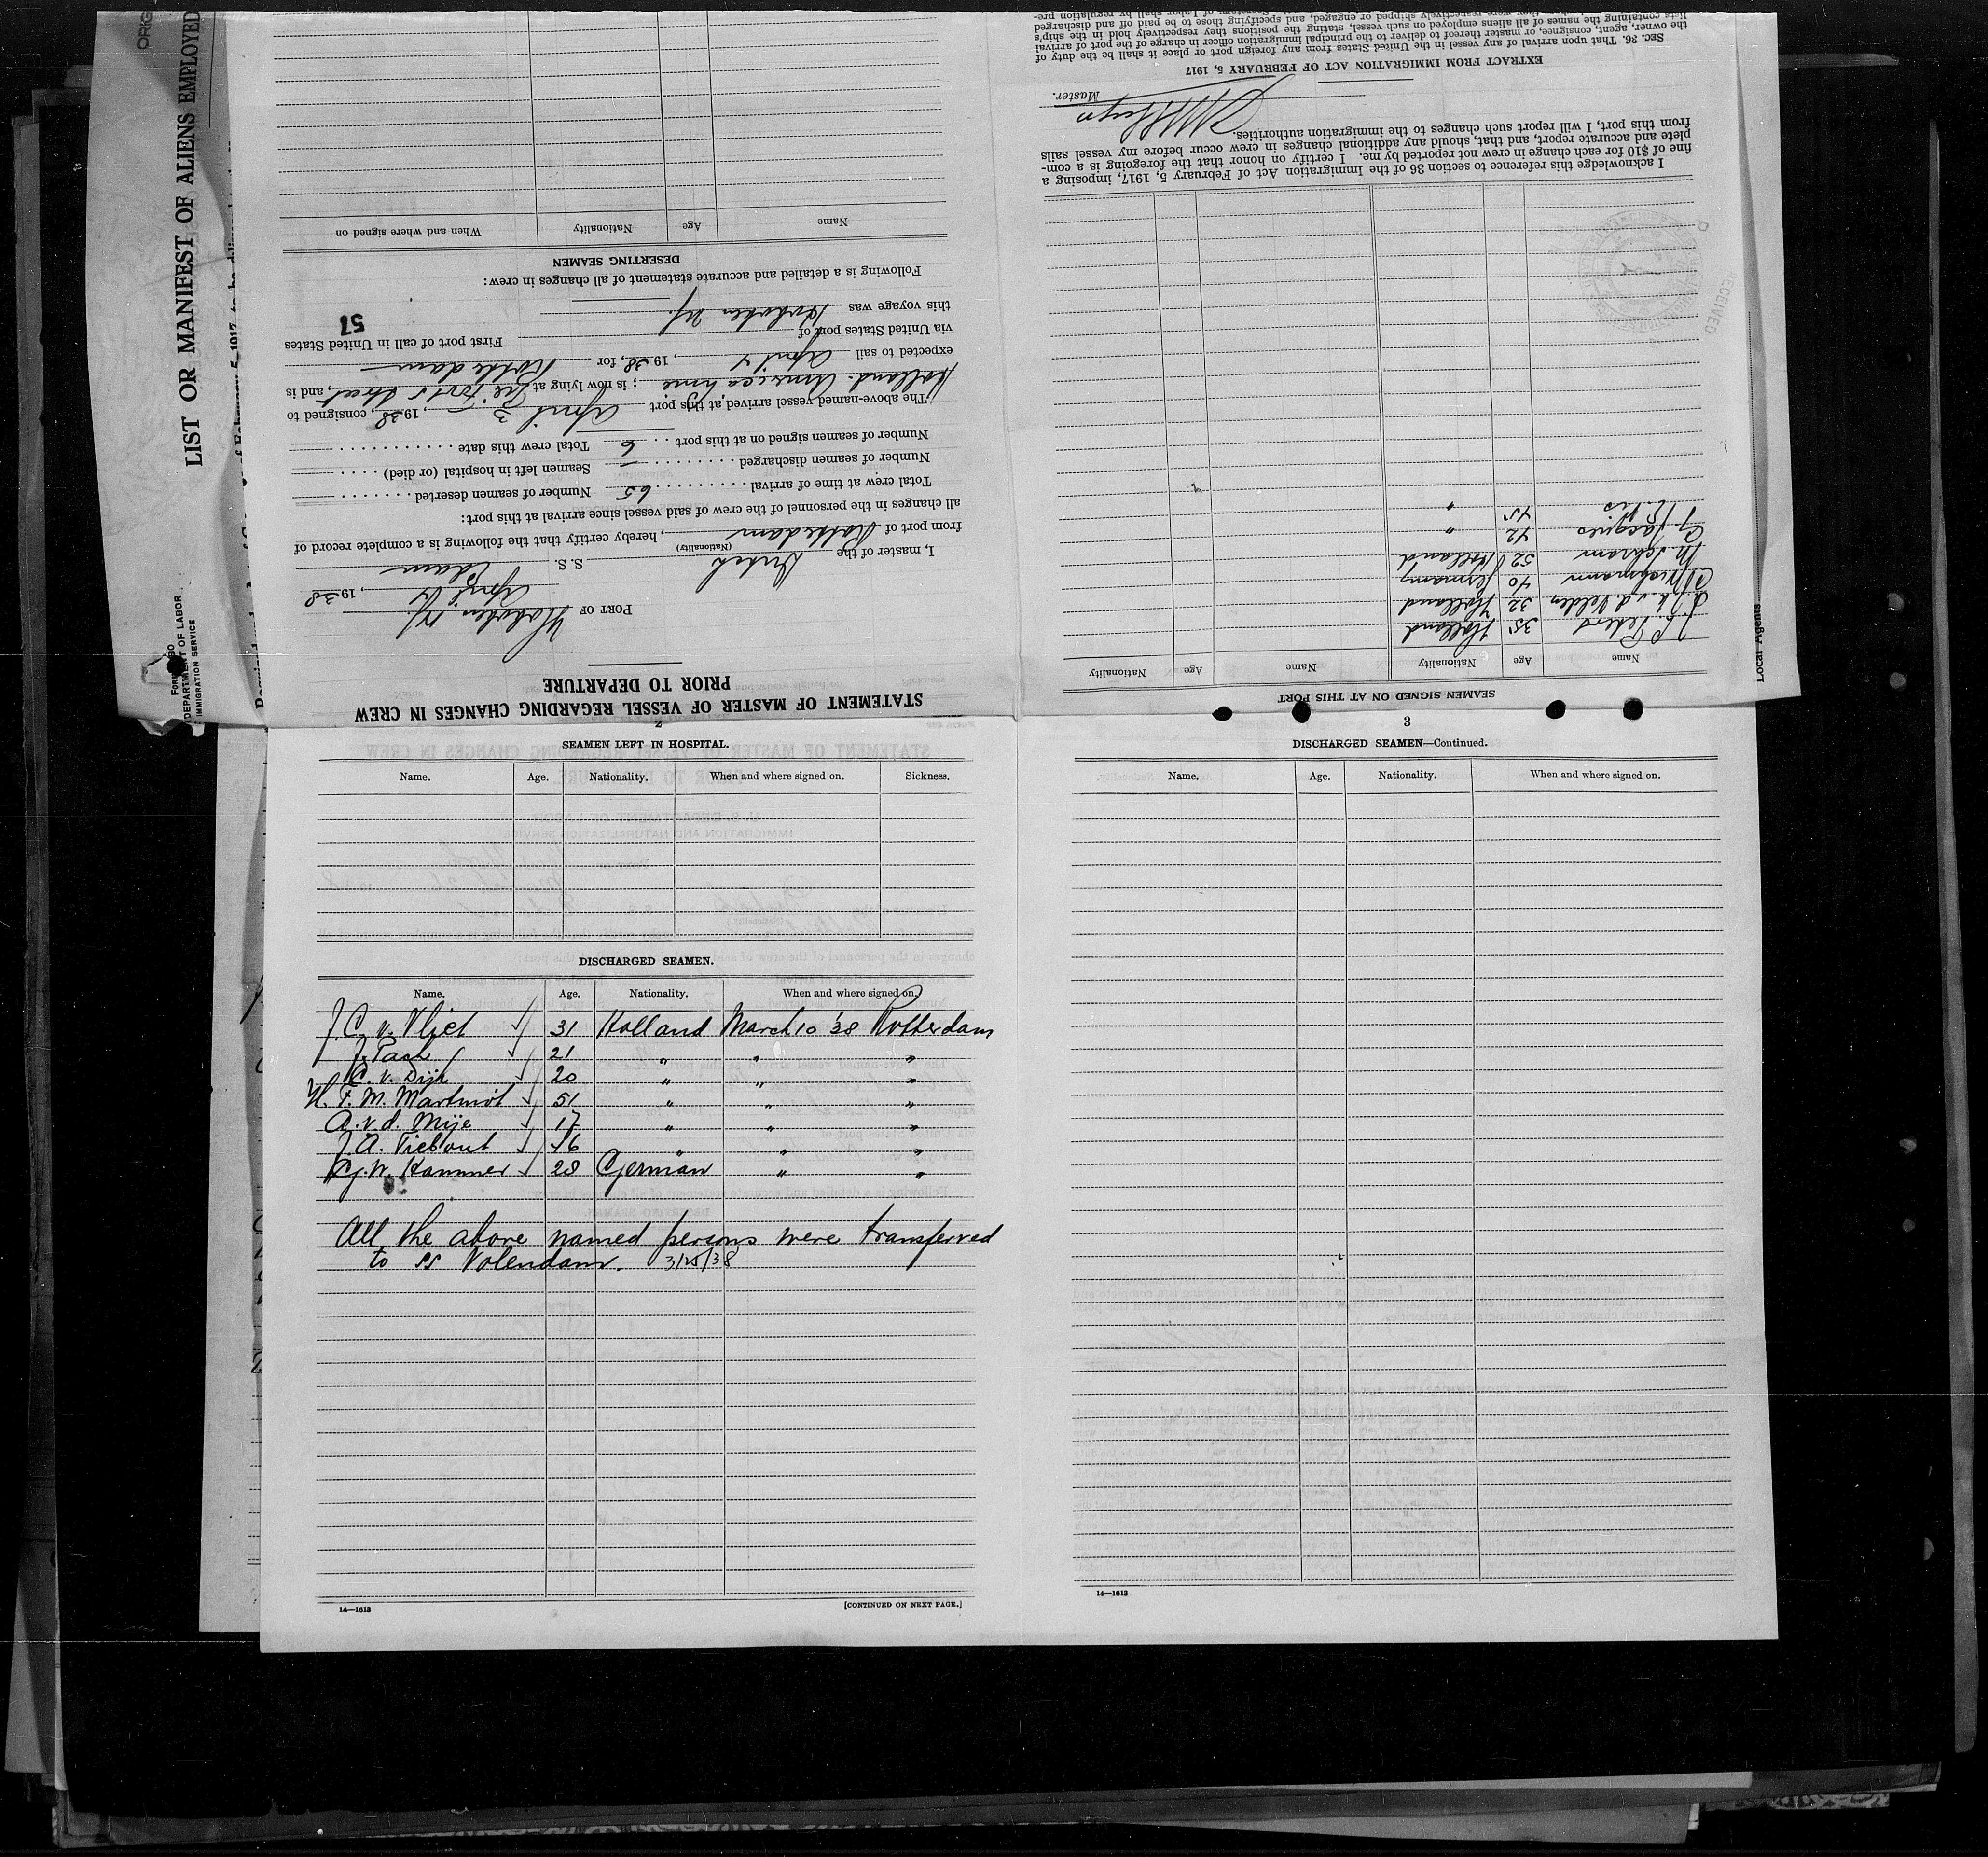 LIST OR MANIFEST OF ALIENS EMPLOYED
DEPARTMENT OF LABOR
IMMIGRATION SERVICE
STATEMENT OF MASTER OF VESSEL REGARDING CHANGES IN CREW
PRIOR TO DEPARTURE
PORT OF Hoboken NJ.
April 4, 1938
I, master of the Dutch S. S. Edam
(Nationality)
from port of Rotterdam, hereby certify that the following is a complete record of
all changes in the personnel of the crew of said vessel since arrival at this port:
Total crew at time of arrival 65 Number of seamen deserted
Number of seamen discharged — Seamen left in hospital (or died)
Number of seamen signed on at this port 6 Total crew this date
The above-named vessel arrived at this port April 3, 1938, consigned to
Holland-America Line; is now lying at Street, and is
expected to sail April 4, 1938, for Rotterdam
via United States port of First port of call in United States
this voyage was Hoboken NJ.
57
Following is a detailed and accurate statement of all changes in crew:
DESERTING SEAMEN
Name Age Nationality When and where signed on
SEAMEN SIGNED ON AT THIS PORT
Name Age Nationality Name Age Nationality
Peters 35 Holland
v. d. Velden 32 Holland
40 Germany
M. Schram 52 Holland
G. Jacques 42 "
45 "
I acknowledge this reference to section 36 of the Immigration Act of February 5, 1917, imposing a
fine of $10 for each change in crew not reported by me. I certify on honor that the foregoing is a com-
plete and accurate report, and that, should any additional changes in crew occur before my vessel sails
from this port, I will report such changes to the immigration authorities.
Master.
EXTRACT FROM IMMIGRATION ACT OF FEBRUARY 5, 1917
SEC. 36. That upon arrival of any vessel in the United States from any foreign port or place it shall be the duty of
the owner, agent, consignee, or master thereof to deliver to the principal immigration officer in charge of the port of arrival
lists containing the names of all aliens employed on such vessel, stating the positions they respectively hold in the ship's
Local Agents
2
SEAMEN LEFT IN HOSPITAL.
Name. Age. Nationality. When and where signed on. Sickness.
DISCHARGED SEAMEN.
Name. Age. Nationality. When and where signed on.
J. C. v. Vliet 31 Holland March 10 '38 Rotterdam
J. Paah 21 " " "
C. v. Dijk 20 " " "
H. F. M. Martinot 51 " " "
A. v. d. Mije 17 " " "
J. A. Tiebout 46 " " "
G. W. Kammer 28 German " "
All the above named persons were transferred
to ss Volendam. 3/25/38
14—1613
[CONTINUED ON NEXT PAGE.]
3
DISCHARGED SEAMEN—Continued.
Name. Age. Nationality. When and where signed on.
14—1613